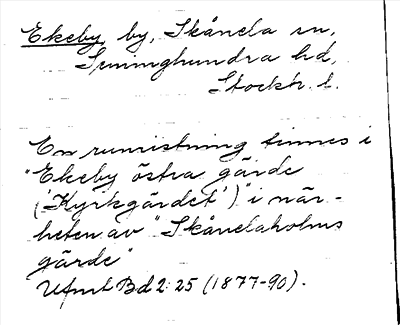 Ekeby, by, Skånela sn,
Seminghundra hd,
Stockh. l.
En runristning finnes i
"Ekeby östra gärde
('Kyrkgärdet')" i när-
heten av "Skånelaholms
gärde"
Ufmt Bd 2:25 (1877-90).